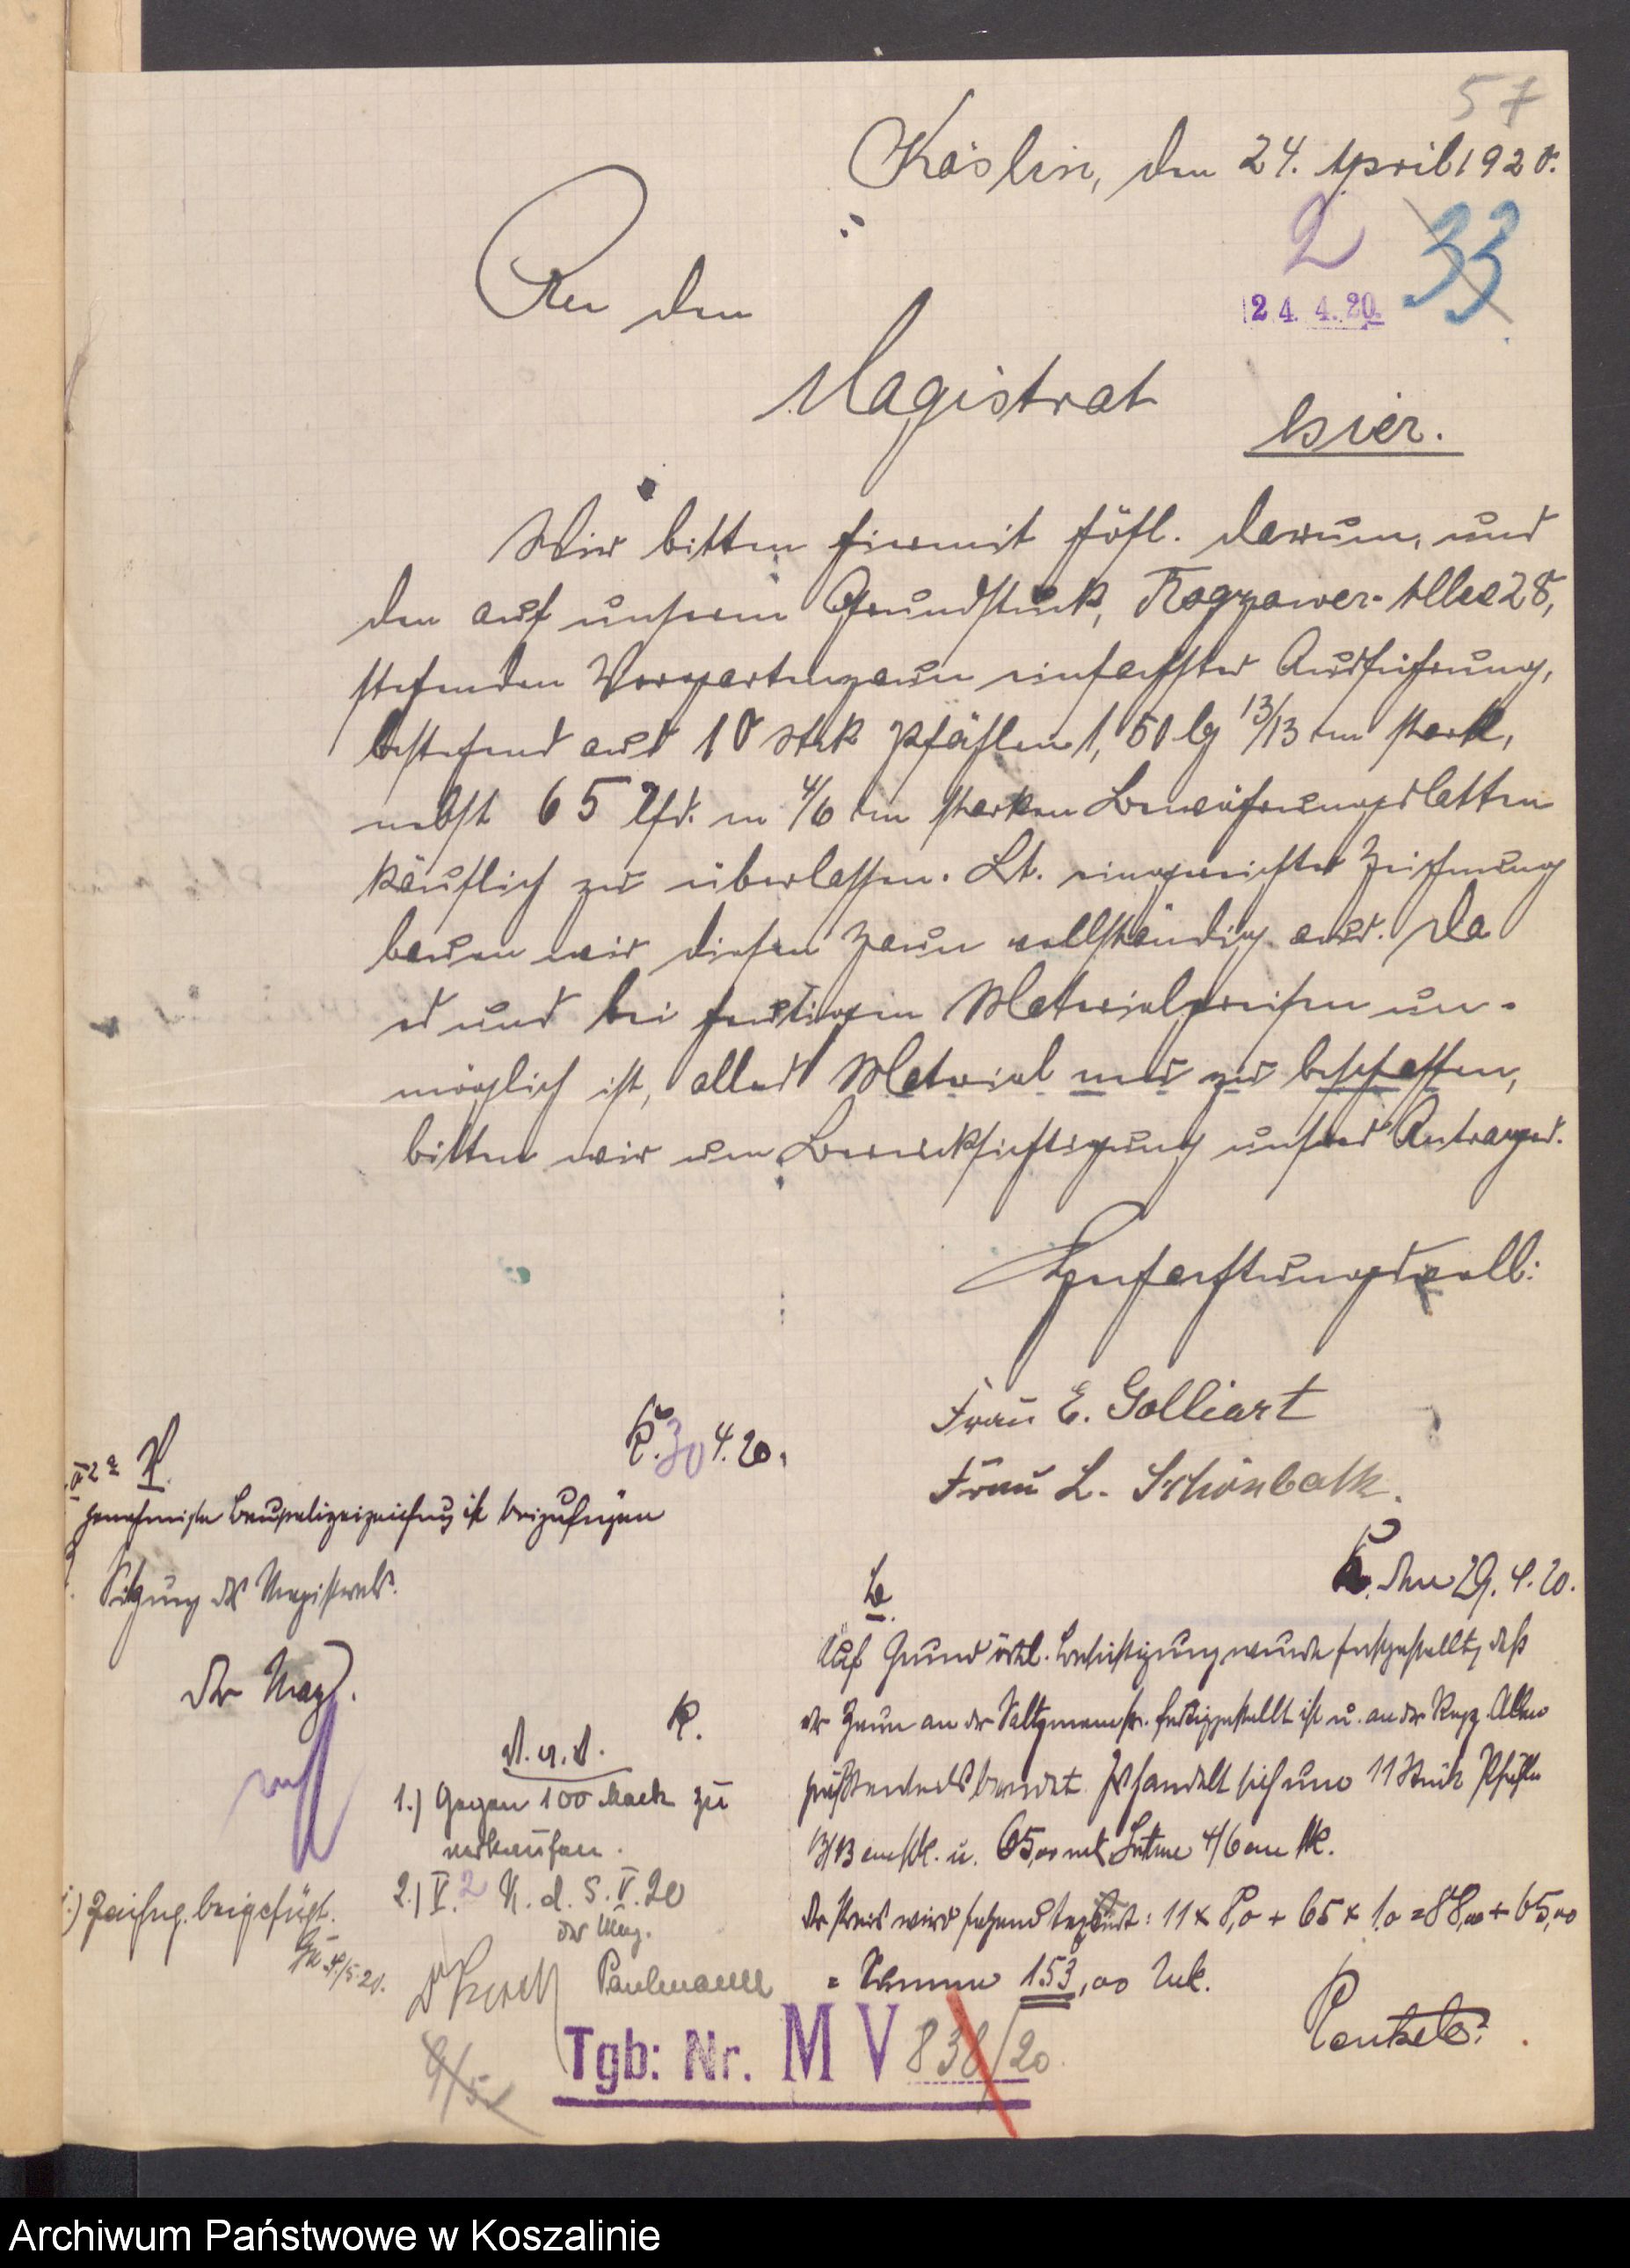 57
Köslin, den 24. April 1920.
2 33
24. 4. 20.
An den
Magistrat
hier.
Wir bitten hiermit höfl. darum, uns
den auf unserm Grundstück, Rogzower-Allee 28,
stehenden Vorgartenzaun einfachster Ausführung,
bestehend aus 10 Stck Pfählen 1,50 lg 13/13 cm stark,
nebst 65 lfd. m 4/6 cm starken Bewährungslatten
käuflich zu überlassen. Lt. eingereichter Zeichnung
bauen wir diesen Zaun vollständig aus. Da
es uns bei heutigen Materialpreisen un-
möglich ist, alles Material neu zu beschaffen,
bitten wir um Berücksichtigung unsres Antrages.
Hochachtungsvoll:
Frau E. Golliart
Frau L. Schönbohk.
K. 30 4. 20.
genehmigte Baupolizeizeichnung ist beizufügen
Sitzung des Magistrats.
Der Mag.
K. den 29. 4. 20.
Auf Grund örtl. Besichtigung wurde festgestellt, daß
der Zaun an der Saltzmannstr. fertiggestellt ist u. an der Rogz. Allee
größtenteils beendet. Es handelt sich um 11 Stück Pfähle
13/13 cm stk. u. 65,00 mtr Latten 4/6 cm stk.
Der Preis wird folgend taxiert: 11 x 8,0 + 65 x 1,0 = 88,00 + 65,00
= Summe 153,00 Mk.
K.
1.) Gegen 100 Mark zu
verkaufen.
2.) V. 2 K. d. 5. V. 20
Der Mag.
Paulmann
Zeichng. beigefügt.
4/5. 20.
9/5
Tgb: Nr. M V 838/20
Archiwum Państwowe w Koszalinie